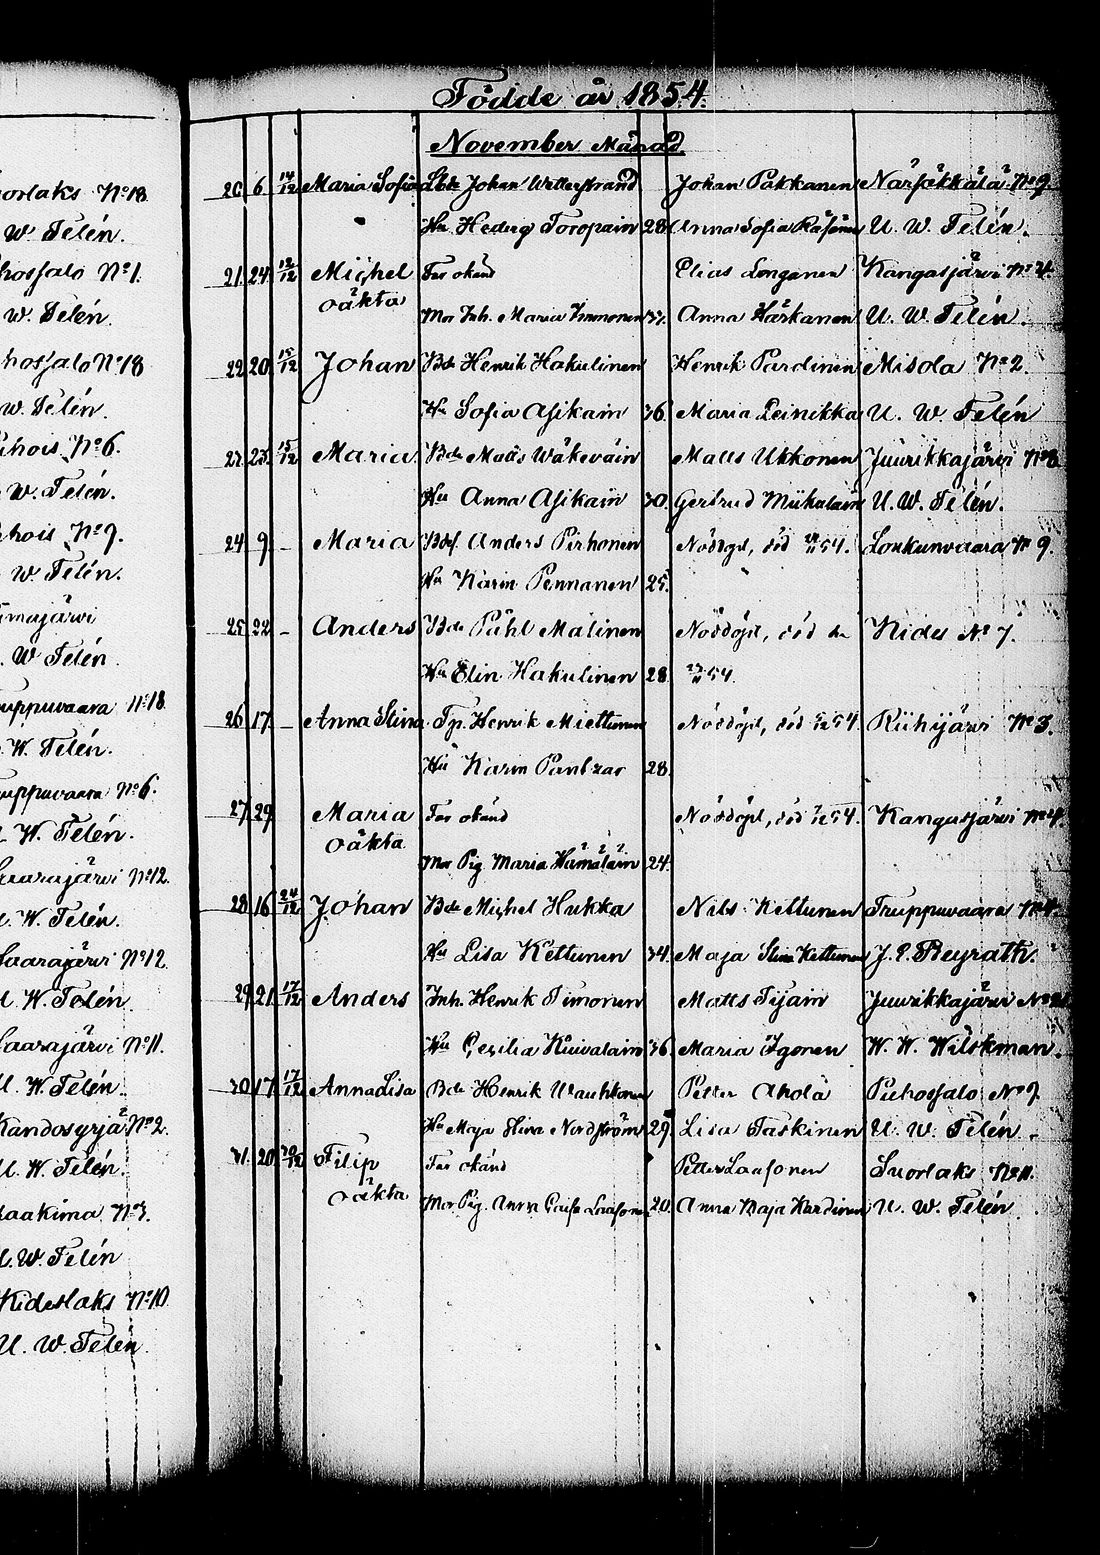 uorlaks N:o 18
W. Telén.
hosfalo N:o 1.
W. Telén.
hosfalo N:o 18
W. Telén.
hois N:o 6.
W. Telén.
hois N:o 9.
W. Telén.
imajärvi
W Telén.
uppuvaara N:o 18
W. Telén.
uppuvaara N:o 6.
W. Telén.
aarajärvi N:o 12.
W. Telén.
aarajärvi N:o 12
U. W. Telén.
aarajärvi N:o 11.
U. W. Telén.
Kandosyrjä N:o 2.
U. W. Telén.
aakima N:o 3.
U. W. Telén
Kideslaks N:o 10
U. W. Telén.
Födde år 1854.
November Månad
20. 6. 14/12 Maria Sofia Johan Wetterstrand Johan Pakkanen Närsäkkälä N:o 9.
Hu Hedvig Toropain 28 Anna Sofia Räsänen U. W. Telén.
21. 24. 12/12 Michel Far okänd Elias Longanen Kangasjärvi N:o 4.
oäkta
Mor Inh. Maria Immonen 37. Anna Härkänen U. W. Telén.
22 20 15/12 Johan Bde Henrik Hakulinen Henrik Pardinen Misola N:o 2.
Hu Sofia Asikain 36 Maria Leinikka U. W. Telén
23. 15/12 Maria. Bde Wäkeväin Matts Ukkonen Juurikkajärvi N:o 8
Hu Anna Asikain 30. Gertrud Miikalain U. W. Telén.
24 9. - Maria Anders Pirhonen Nöddöpt, död 54. Loukunvaara N:o 9.
Hu Karin Pennanen 25.
25. 22 - Anders Bde Påhl Malinen Nöddöpt, död den Kides N:o 7.
Hu Elin Hakulinen 28. 54.
26 17. - Anna Stina Tp. Henrik Miettunen Nöddöpt, död 54. Riihijärvi N:o 3.
Hu Karin Pantzar 28.
27. 29. Maria Far okänd Nöddöpt, död 54. Kangasjärvi N:o 4.
oäkta
Mor Pig. Maria Hämäläin 24.
28 16 24/12 Johan Bde Michel Hukka Nils Kettunen Truppuvaara N:o 4.
Hu Lisa Kettunen 34. Maja Stina Kettunen J. E. Beyrath.
29. 21. 17/12 Anders Inh. Henrik Timonen Matts Tijain Juurikkajärvi
Hu Cecilia Kuivalain 36. Maria Igonen W. W. Wilskman.
30. 17. 17/12 Anna Lisa Bde Henrik Wauhkonen Petter Ahola Puhosfalo N:o 9
Hu Maja Stina Nordström 29. Lisa Taskinen U. W. Telén.
31. 20 Filip Far okänd Petter Laasonen Suorlaks N:o 11.
oäkta
Mor Pig. Anna Caisa Laasonen 20. Anna Maja Kardinen U. W. Telén.